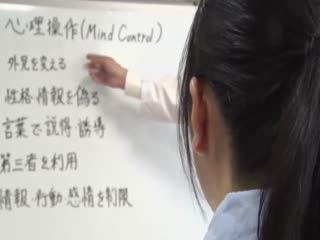 心理操作(Mind Control)
外見を変える
性格・情報を偽る
言葉で説得・誘導
第三者を利用
情報・行動・感情を制限